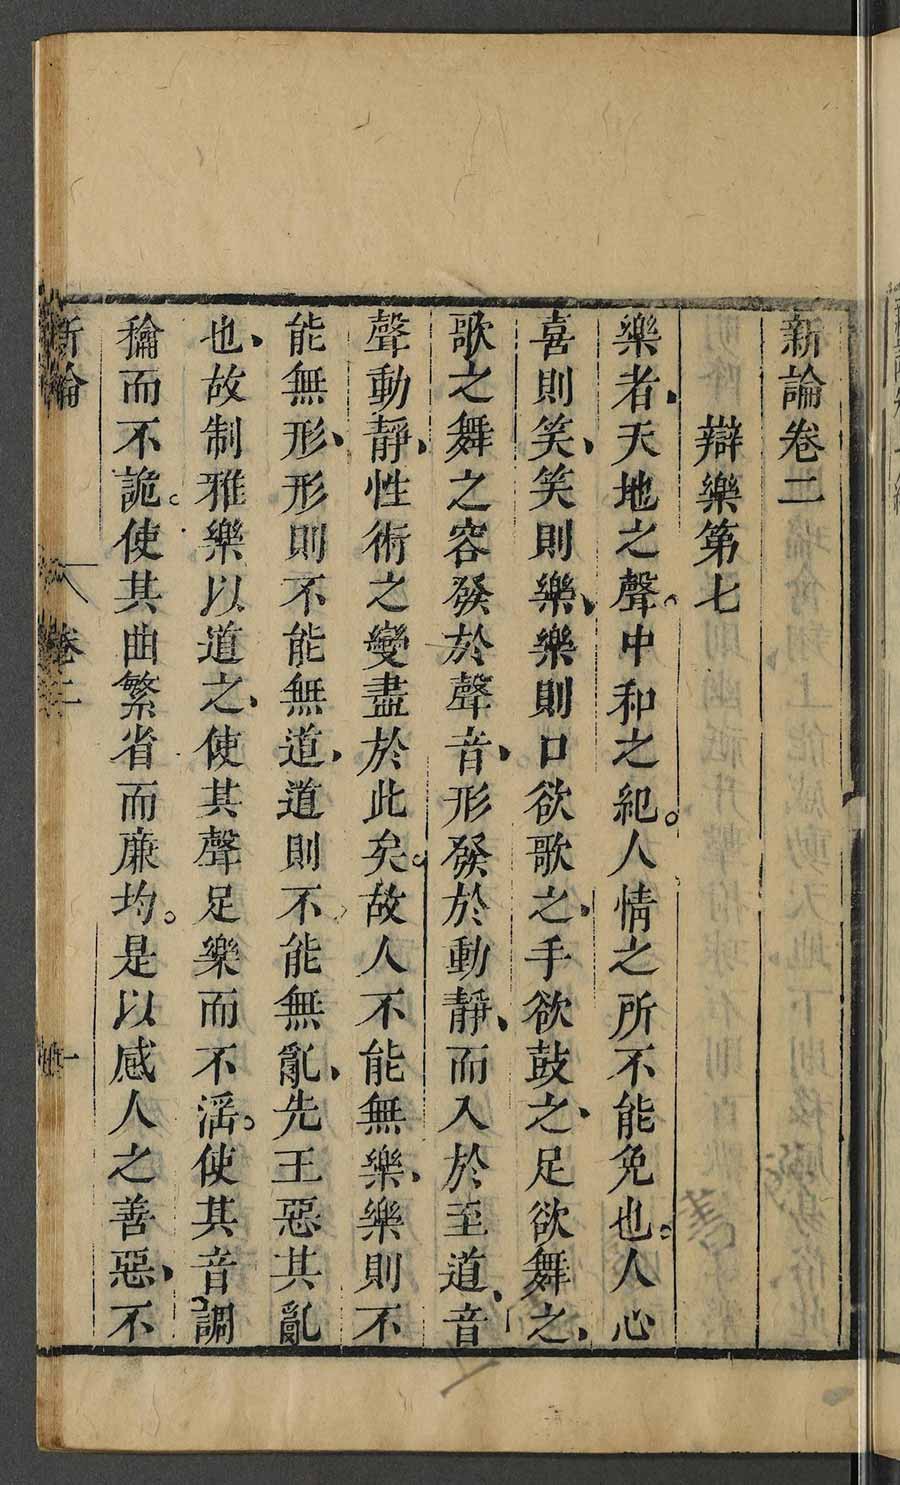 新論卷二
辯樂第七
樂者、天地之聲。中和之紀。人情之所不能免也。人心
喜則笑、笑則樂、樂則口欲歌之、手欲鼓之、足欲舞之、
歌之舞之容發於聲音、形發於動靜、而入於至道、音
聲動靜、性術之變盡於此矣。故人不能無樂、樂則不
能無形、形則不能無道、道則不能無亂、先王惡其亂
也、故制雅樂以道之、使其聲足樂而不淫。使其音調
而不詭。使其曲繁省而廉均。是以感人之善惡、不
新論
卷二
一